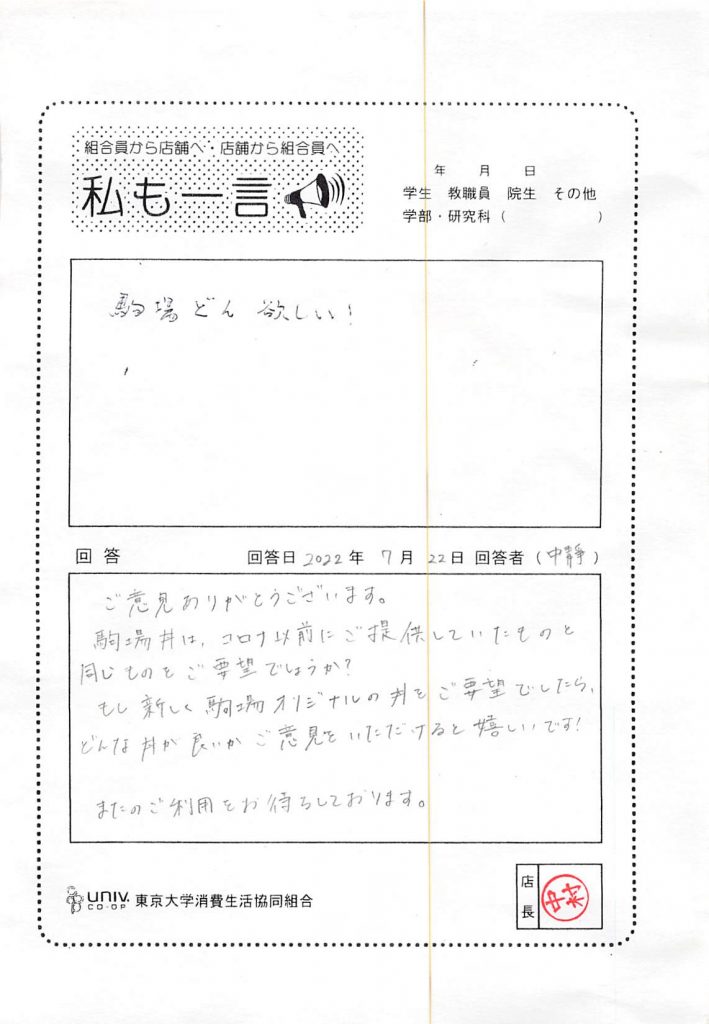 組合員から店舗へ・店舗から組合員へ
私も一言
年 月 日
学生 教職員 院生 その他
学部・研究科（ ）
駒場どん 欲しい！
回答 回答日 2022年 7月 22日 回答者（中静）
ご意見ありがとうございます。
駒場丼は、コロナ以前にご提供していたものと
同じものをご要望でしょうか？
もし新しく駒場オリジナルの丼をご要望でしたら、
どんな丼が良いかご意見をいただけると嬉しいです！
またのご利用をお待ちしております。
UNIV. CO-OP 東京大学消費生活協同組合
店長 中村